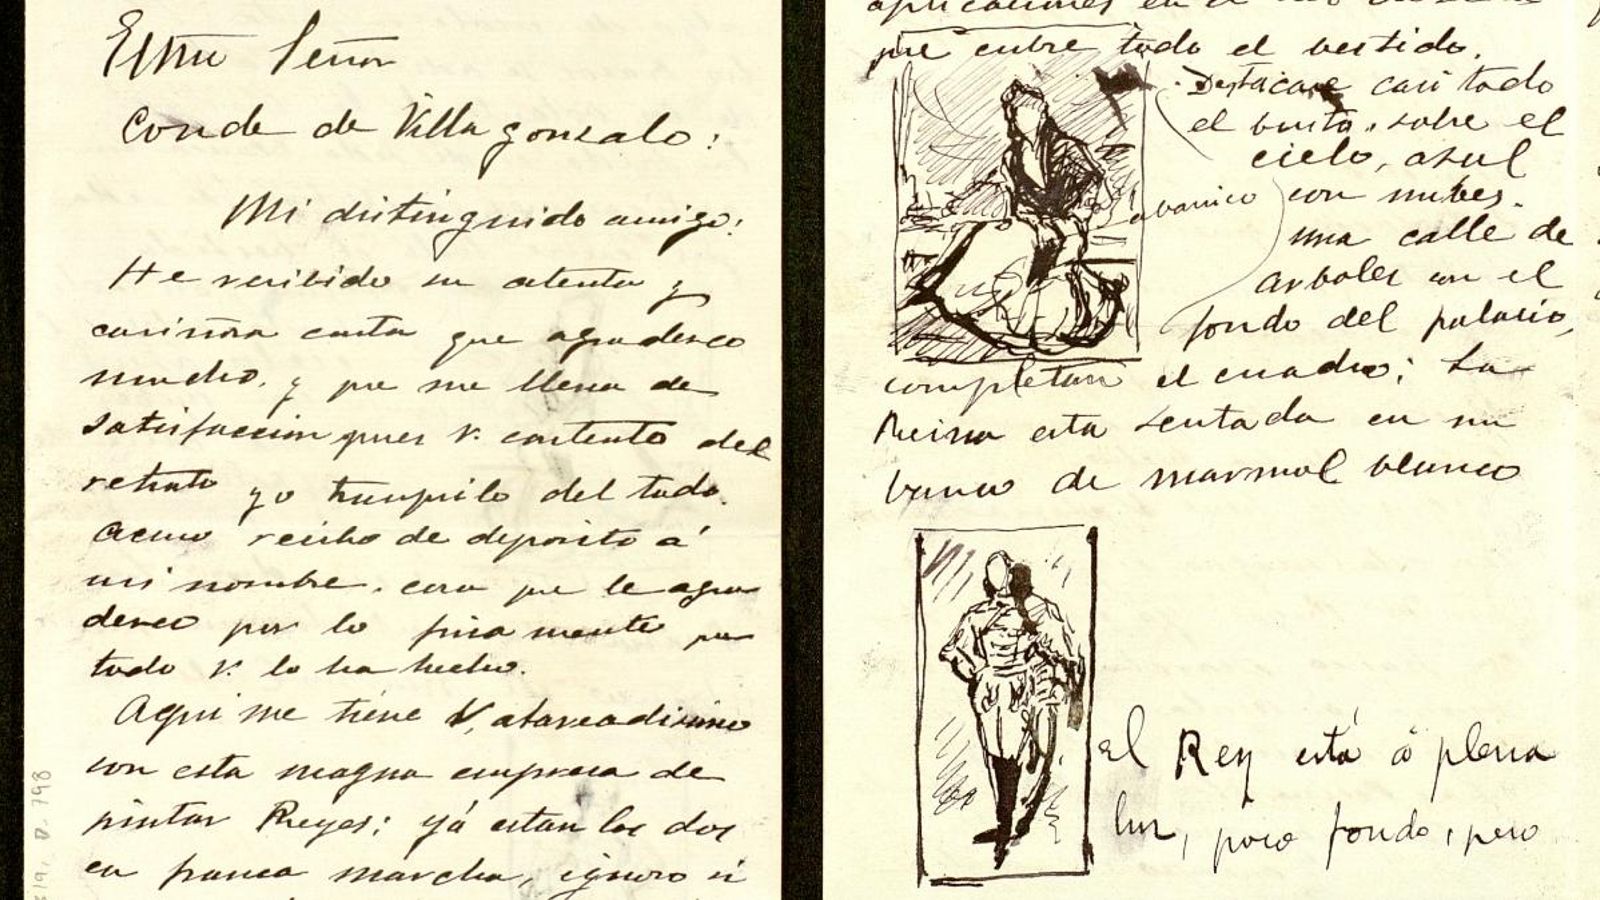 Exmo Señor
Conde de Villagonzalo:
Mi distinguido amigo:
He recibido su atenta y
cariñosa carta que agradezco
mucho, y que me llena de
satisfaccion pues V. contento del
retrato yo tranquilo del todo.
Acuso recibo de deposito á
mi nombre, cosa que le agra
dezco por lo finamente que
todo V. lo ha hecho.
Aqui me tiene V, atareadisimo
con esta magna empresa de
pintar Reyes; yá estan los dos
en franca marcha, ignoro si
aplicaciones en el
que cubre todo el vestido.
Destacase casi todo
el busto, sobre el
cielo, azul
abanico
con nubes.
una calle de
arboles con el
fondo del palacio,
completan el cuadro; La
Reina esta sentada en un
banco de marmol blanco
El Rey está á plena
luz, poco fondo, pero
D. 798